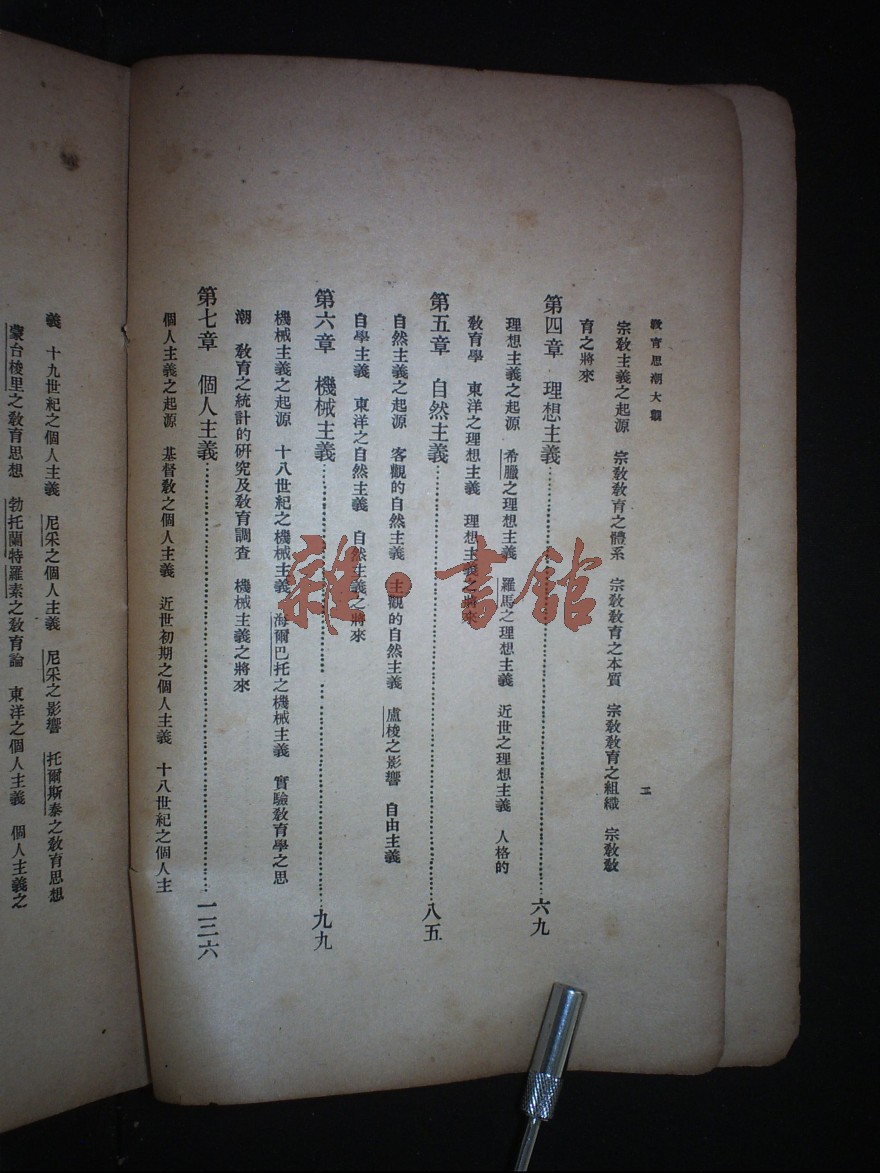 教育思潮大觀
二
宗教主義之起源　宗教教育之體系　宗教教育之本質　宗教教育之組織　宗教教
育之將來
第四章　理想主義……六九
理想主義之起源　希臘之理想主義　羅馬之理想主義　近世之理想主義　人格的
教育學　東洋之理想主義　理想主義之將來
第五章　自然主義……八五
自然主義之起源　客觀的自然主義　主觀的自然主義　盧梭之影響　自由主義
自學主義　東洋之自然主義　自然主義之將來
第六章　機械主義……九九
機械主義之起源　十八世紀之機械主義　海爾巴托之機械主義　實驗教育學之思
潮　教育之統計的研究及教育調查　機械主義之將來
第七章　個人主義……一三六
個人主義之起源　基督教之個人主義　近世初期之個人主義　十八世紀之個人主
義　十九世紀之個人主義　尼采之個人主義　尼采之影響　托爾斯泰之教育思想
蒙台梭里之教育思想　勃托蘭特羅素之教育論　東洋之個人主義　個人主義之
雜·書館